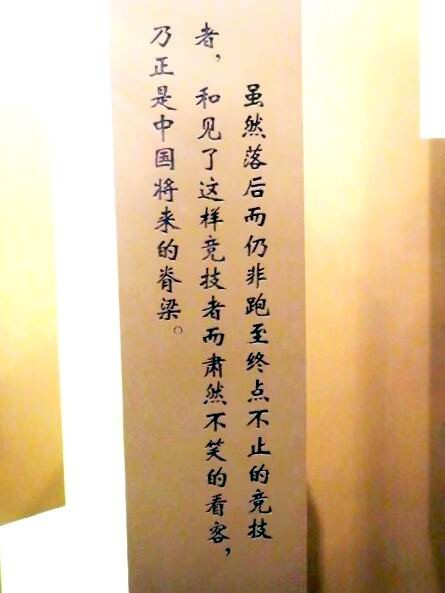 虽然落后而仍非跑至终点不止的竞技
者，和见了这样竞技者而肃然不笑的看客，
乃正是中国将来的脊梁。